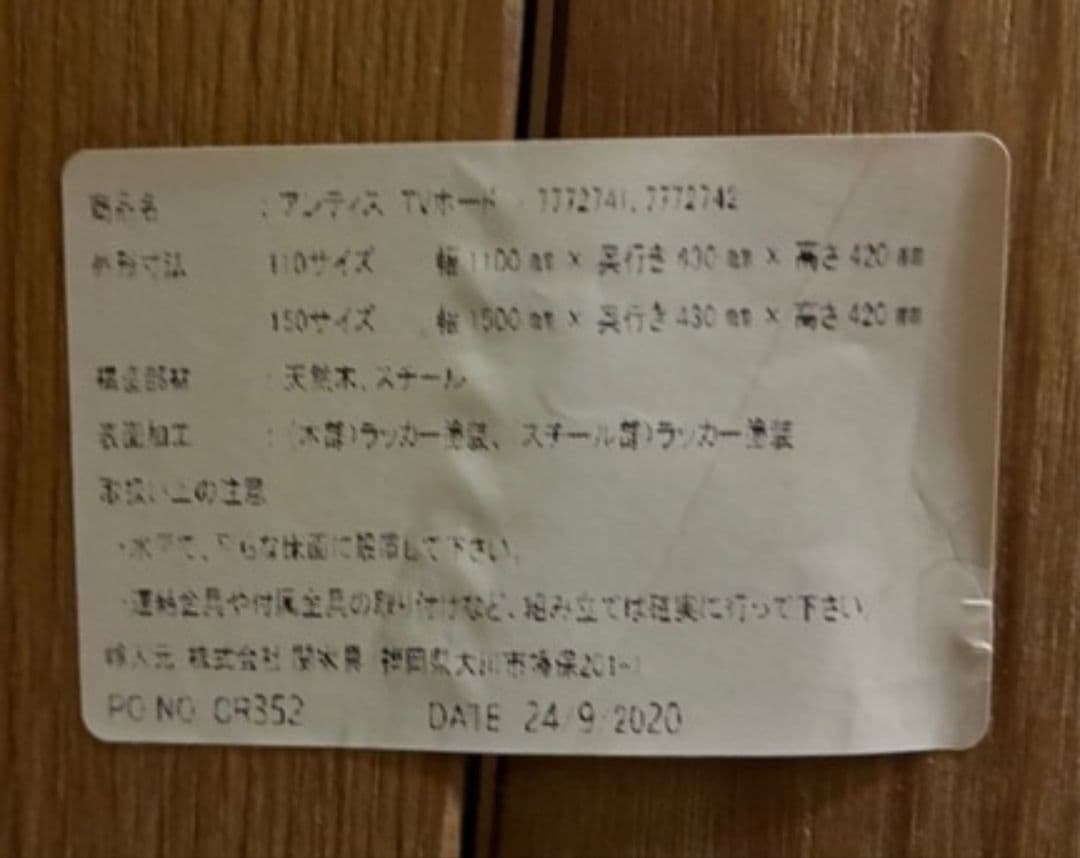 商品名 : アンティス TVボード 7772741, 7772742
外形寸法 110サイズ 幅 1100 mm × 奥行き 430 mm × 高さ 420 mm
150サイズ 幅 1500 mm × 奥行き 430 mm × 高さ 420 mm
構造部材 : 天然木、スチール
表面加工 : (木部)ラッカー塗装、スチール部)ラッカー塗装
取扱い上の注意
・水平で、平らな床面に設置して下さい。
・連結金具や付属金具の取り付けなど、組み立ては確実に行って下さい。
輸入元 株式会社 関家具 福岡県大川市幡保201-1
PO NO CR352 DATE 24/9/2020